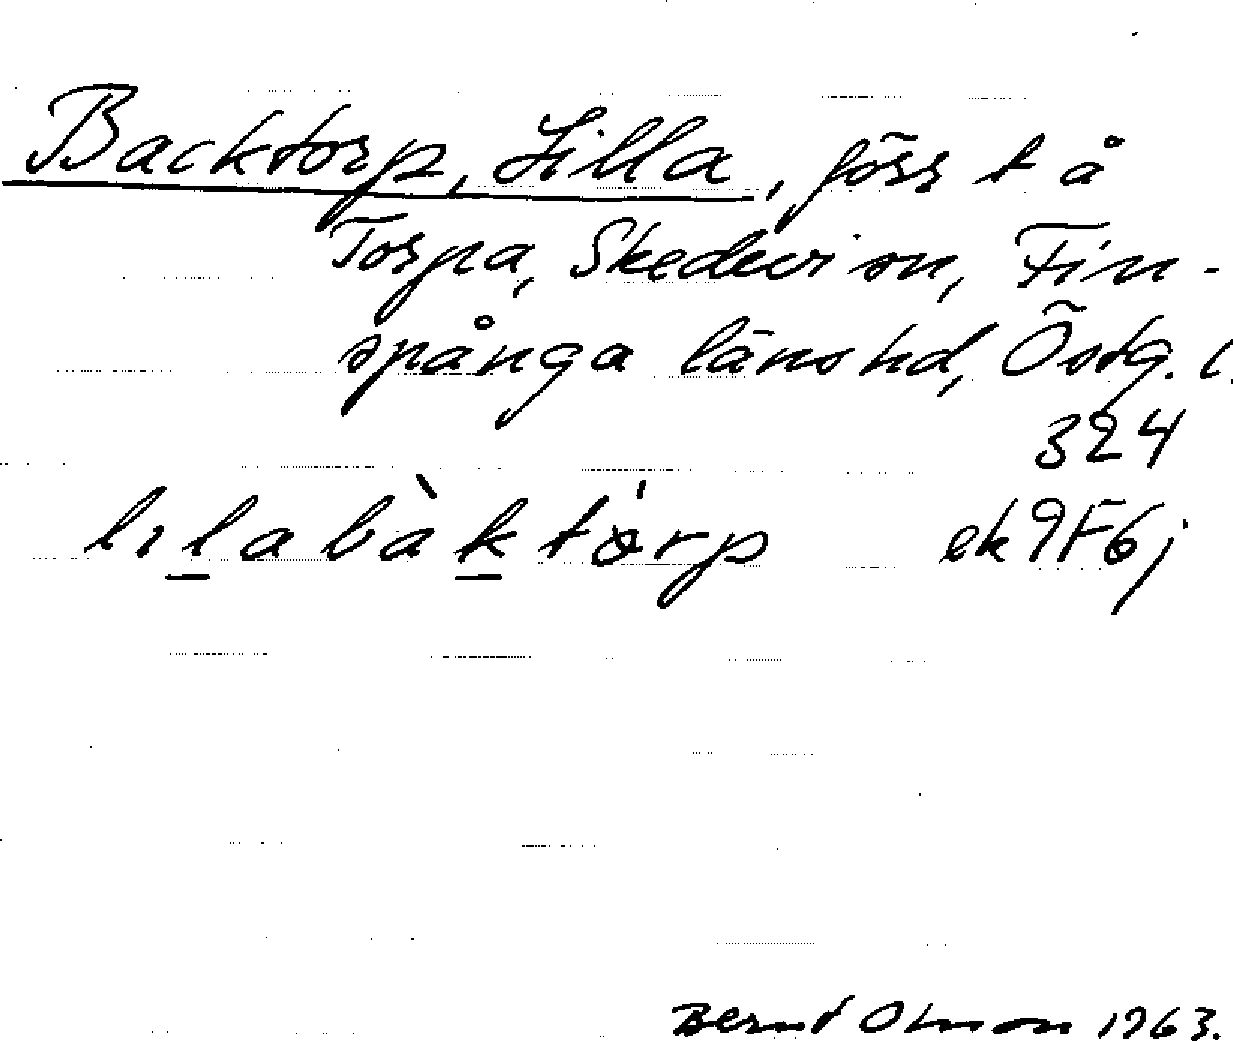 Backtorp, Lilla, förr t å
Torpa, Skedevi sn, Fin-
spånga länshd, Östg. l.
324
lılabàktórp ek 9F6j
Bernt Olsson 1963.